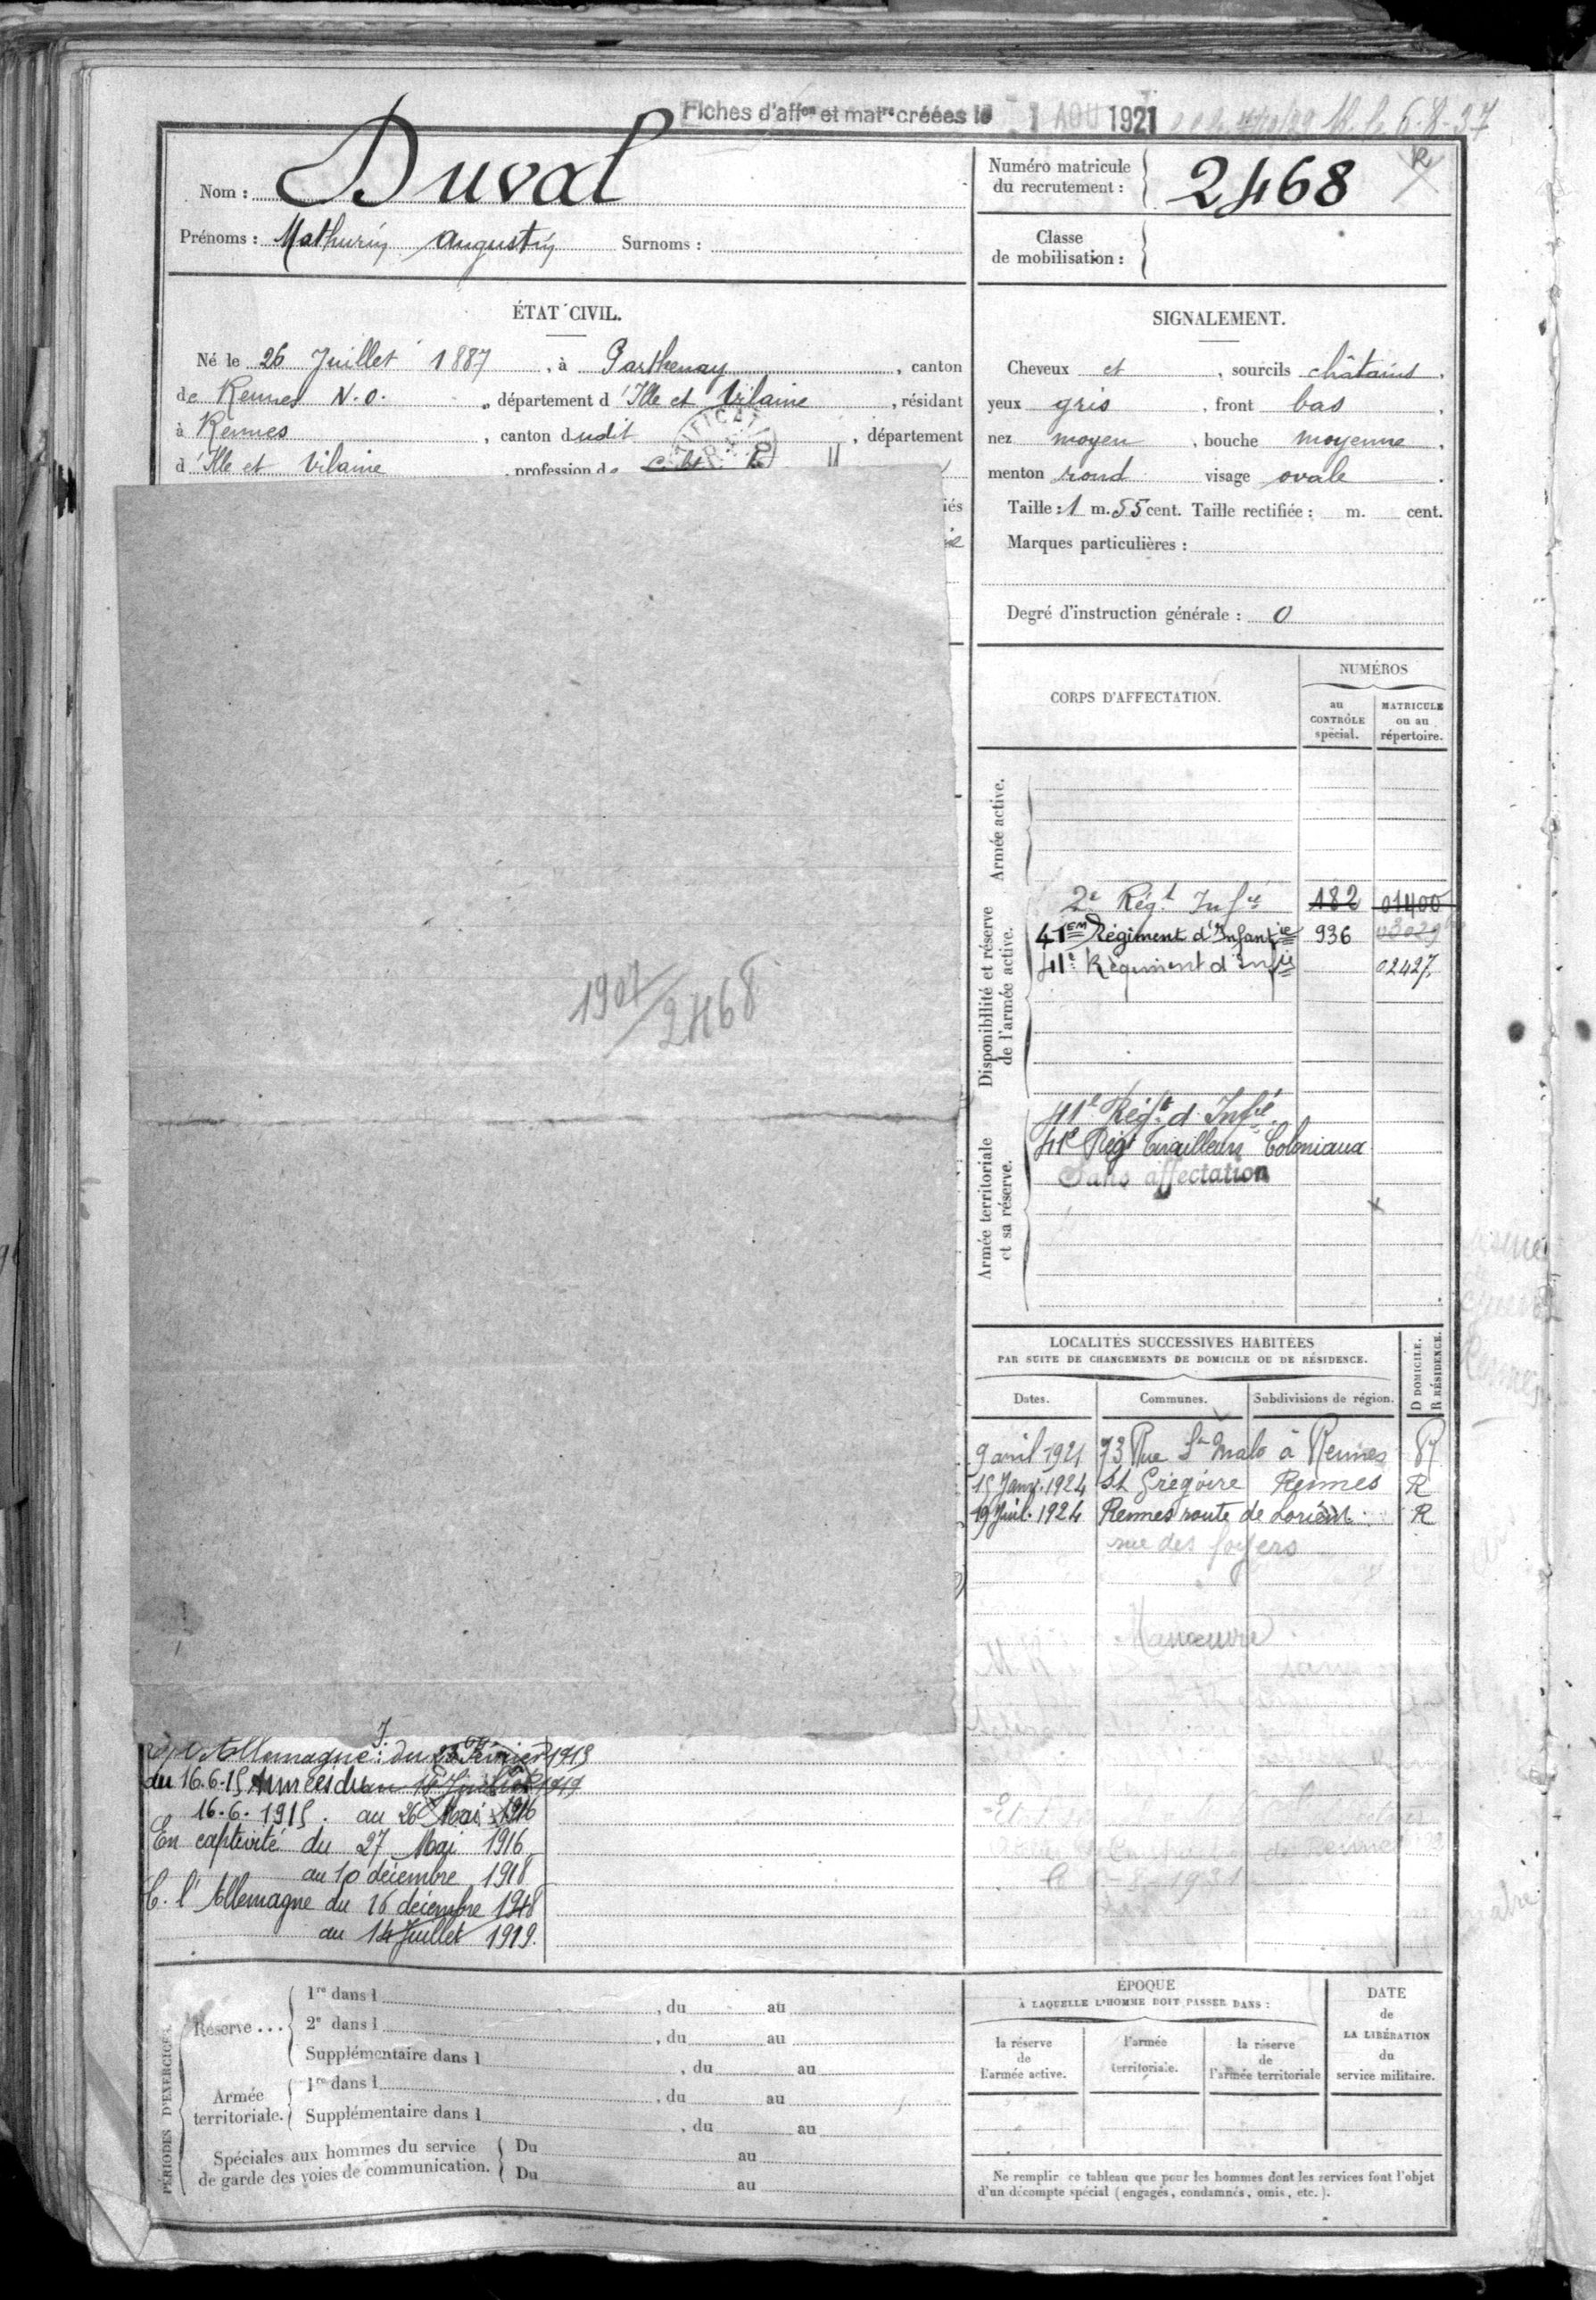 Fiches d'affon et matre créées le 1 AOU 1921
6-8-27
Nom : Duval
Prénoms : Mathurin Augustin Surnoms :
Numéro matricule
du recrutement : 2468
R
Classe
de mobilisation :
ÉTAT CIVIL.
Né le 26 Juillet 1887, à Parthenay, canton
de Rennes N.O., département d'Ille et Vilaine, résidant
à Rennes, canton dudit, département
d'Ille et Vilaine, profession de
SIGNALEMENT.
Cheveux et, sourcils châtains,
yeux gris, front bas,
nez moyen, bouche moyenne,
menton rond visage ovale.
Taille : 1 m. 55 cent. Taille rectifiée : m. cent.
Marques particulières :
Degré d'instruction générale : 0
1907/2468
CORPS D'AFFECTATION.
NUMÉROS
au
CONTRÔLE
spécial.
MATRICULE
ou au
répertoire.
Armée active.
Disponibilité et réserve
de l'armée active.
2e Régt Infie 182 01400
41EM Régiment d'Infantie 936 03029
41e Régiment d'Infie 02427.
Armée territoriale
et sa réserve.
41e Régt d'Infie
41e Régt Tirailleurs Coloniaux
Sans affectation
LOCALITÉS SUCCESSIVES HABITÉES
PAR SUITE DE CHANGEMENTS DE DOMICILE OU DE RÉSIDENCE.
Dates. Communes. Subdivisions de région.
D DOMICILE.
R RÉSIDENCE.
9 avril 1921 73 Rue St Malo à Rennes
15 Janv. 1924 St Grégoire Rennes R
19 Juil. 1924 Rennes route de Lorient R
rue des foyers
Manœuvre
Allemagne : du Février 1915
du 16.6.15 Armées du au 14 Juillet 1919
16.6.1915. au 26 Mai 1916
En captivité du 27 Mai 1916
au 10 décembre 1918
C. l'Allemagne du 16 décembre 1918
au 14 Juillet 1919.
PÉRIODES D'EXERCICES.
Réserve...
1re dans l, du au
2e dans l, du au
Supplémentaire dans l, du au
Armée
territoriale.
1re dans l, du au
Supplémentaire dans l, du au
Spéciales aux hommes du service
de garde des voies de communication.
Du au
Du au
ÉPOQUE
À LAQUELLE L'HOMME DOIT PASSER DANS :
la réserve
de
l'armée active.
l'armée
territoriale.
la réserve
de
l'armée territoriale
DATE
de
LA LIBÉRATION
du
service militaire.
Ne remplir ce tableau que pour les hommes dont les services font l'objet
d'un décompte spécial (engagés, condamnés, omis, etc.).